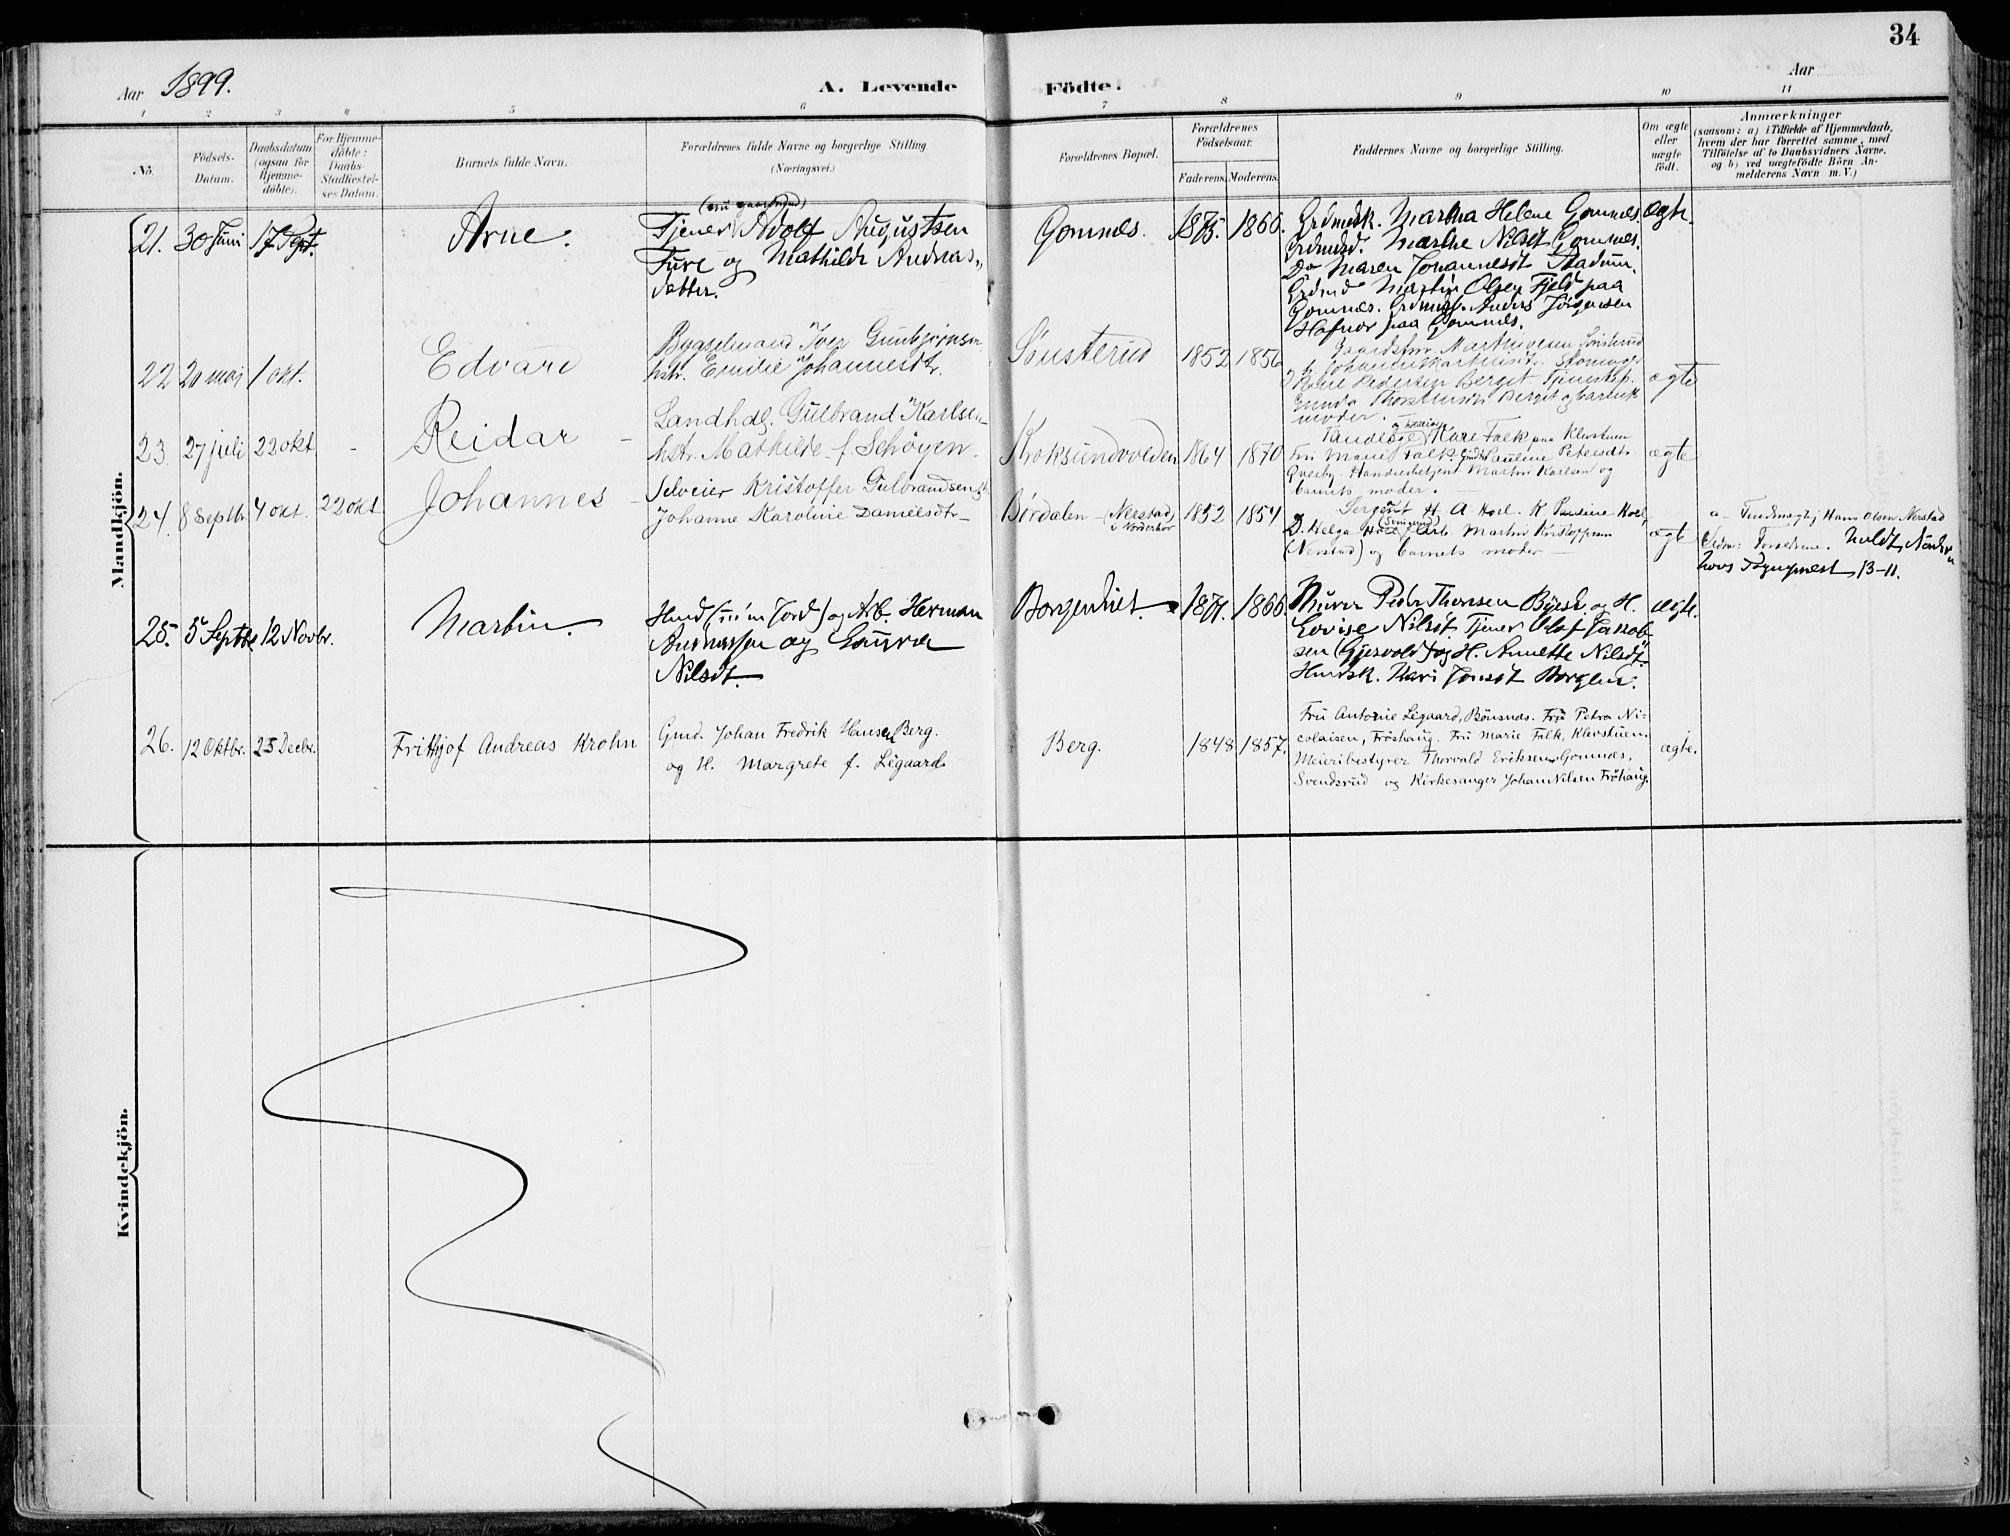 34
Aar 1899.
A. Levende Födte.
Aar
1 2 3 4 5 6 7 8 9 10 11
No.
Födsels-Datum.
Daabsdatum (ogsaa for Hjemmedöbte).
For Hjemmedöbte: Daabs-Stadfæstelses Datum.
Barnets fulde Navn.
Forældrenes fulde Navne og borgerlige Stilling
(Næringsvei.)
Forældrenes Bopæl.
Forældrenes Födselsaar.
Faderens. Moderens.
Faddernes Navne og borgerlige Stilling.
Om ægte eller uægte födt.
Anmærkninger
(saasom: a) i Tilfælde af Hjemmedaab,
hvem der har forrettet samme, med
Tilföielse af to Daabsvidners Navne,
og b) ved uægtefödte Börn An-
melderens Navn m. V.)
Mandkjön.
21. 30 Juni 17 Sept. Arne.
Tjener Adolf Augustsen
Fure og Mathilde Andreas-
datter.
Gomnes. 1875. 1866.
Grdmdsk. Martha Helene Gomnes
Grdmdsd. Marthe Nilsdt Gomnes.
Do Maren Johannesdt Stadum.
Grdmd Martin Olsen Fjeld paa
Gomnes. Grdmds. Anders Jörgensen
Hafnor paa Gomnes.
ægte.
22 20 maj 1 okt. Edvard
Bygselmand Iver Gunbjörnsen
hstr. Emilie Johannesdtr.
Sönsterud 1852 1856
Berget og barnets
moder.
ægte
23. 27 juli 22 okt - Reidar -
Landhdl. Gulbrand Karlsen
hstr. Mathilde f. Schøyen.
Kroksundvveden 1864 1870
Tandlæge Kare Falk paa Klevstuen
Fru Marie Falk. Pauline Petersdtr.
Qverby. Handelsbetjent Martin Karlsen og
barnets moder.
ægte
24. 8 Septbr 4 okt. 22 okt Johannes -
Selveier Kristoffer Gulbrandsen
Johanne Karoline Danielsdtr
Bördalen (Nerstad i Norderhov 1852 1854
Sergent H. A Hoel. K Pauline Hoel,
D. Helga Hoel Arb. Martin Kristoffersen
(Nerstad) og barnets moder
ægte
a- Hans Olsen Nerstad
Vidner: Forældrene.
13-11.
25. 5 Septbr 12 Novbr. Martin.
og Arb. Herman
Andreassen og Laura
Nilsdt.
Borgenhiet. 1871. 1866.
Murer Peder Thoresen Byesh. og H.
Lovise Nilsdt. Tjener Olaf Jakob-
sen (Gjesvold) og H. Annette Nilsdt.
Husmdsk. Kari Jonsdt Borgen.
ægte.
26. 12 Oktbr. 25 Decbr. Frithjof Andreas Krohn
Gmd. Johan Fredrik Hansen Berg.
og H. Margrete f. Legaard.
Berg. 1848 1857.
Fru Antonie Legaard, Bönsnes. Fru Petra Ni-
colaisen, Fröshaug. Fru Marie Falk, Klevstuen.
Meieribestyrer Thorvald Eriksen Gomnes,
Svendsrud og Kirkesanger Johan Nilsen Fröhaug.
ægte.
Kvindekjön.